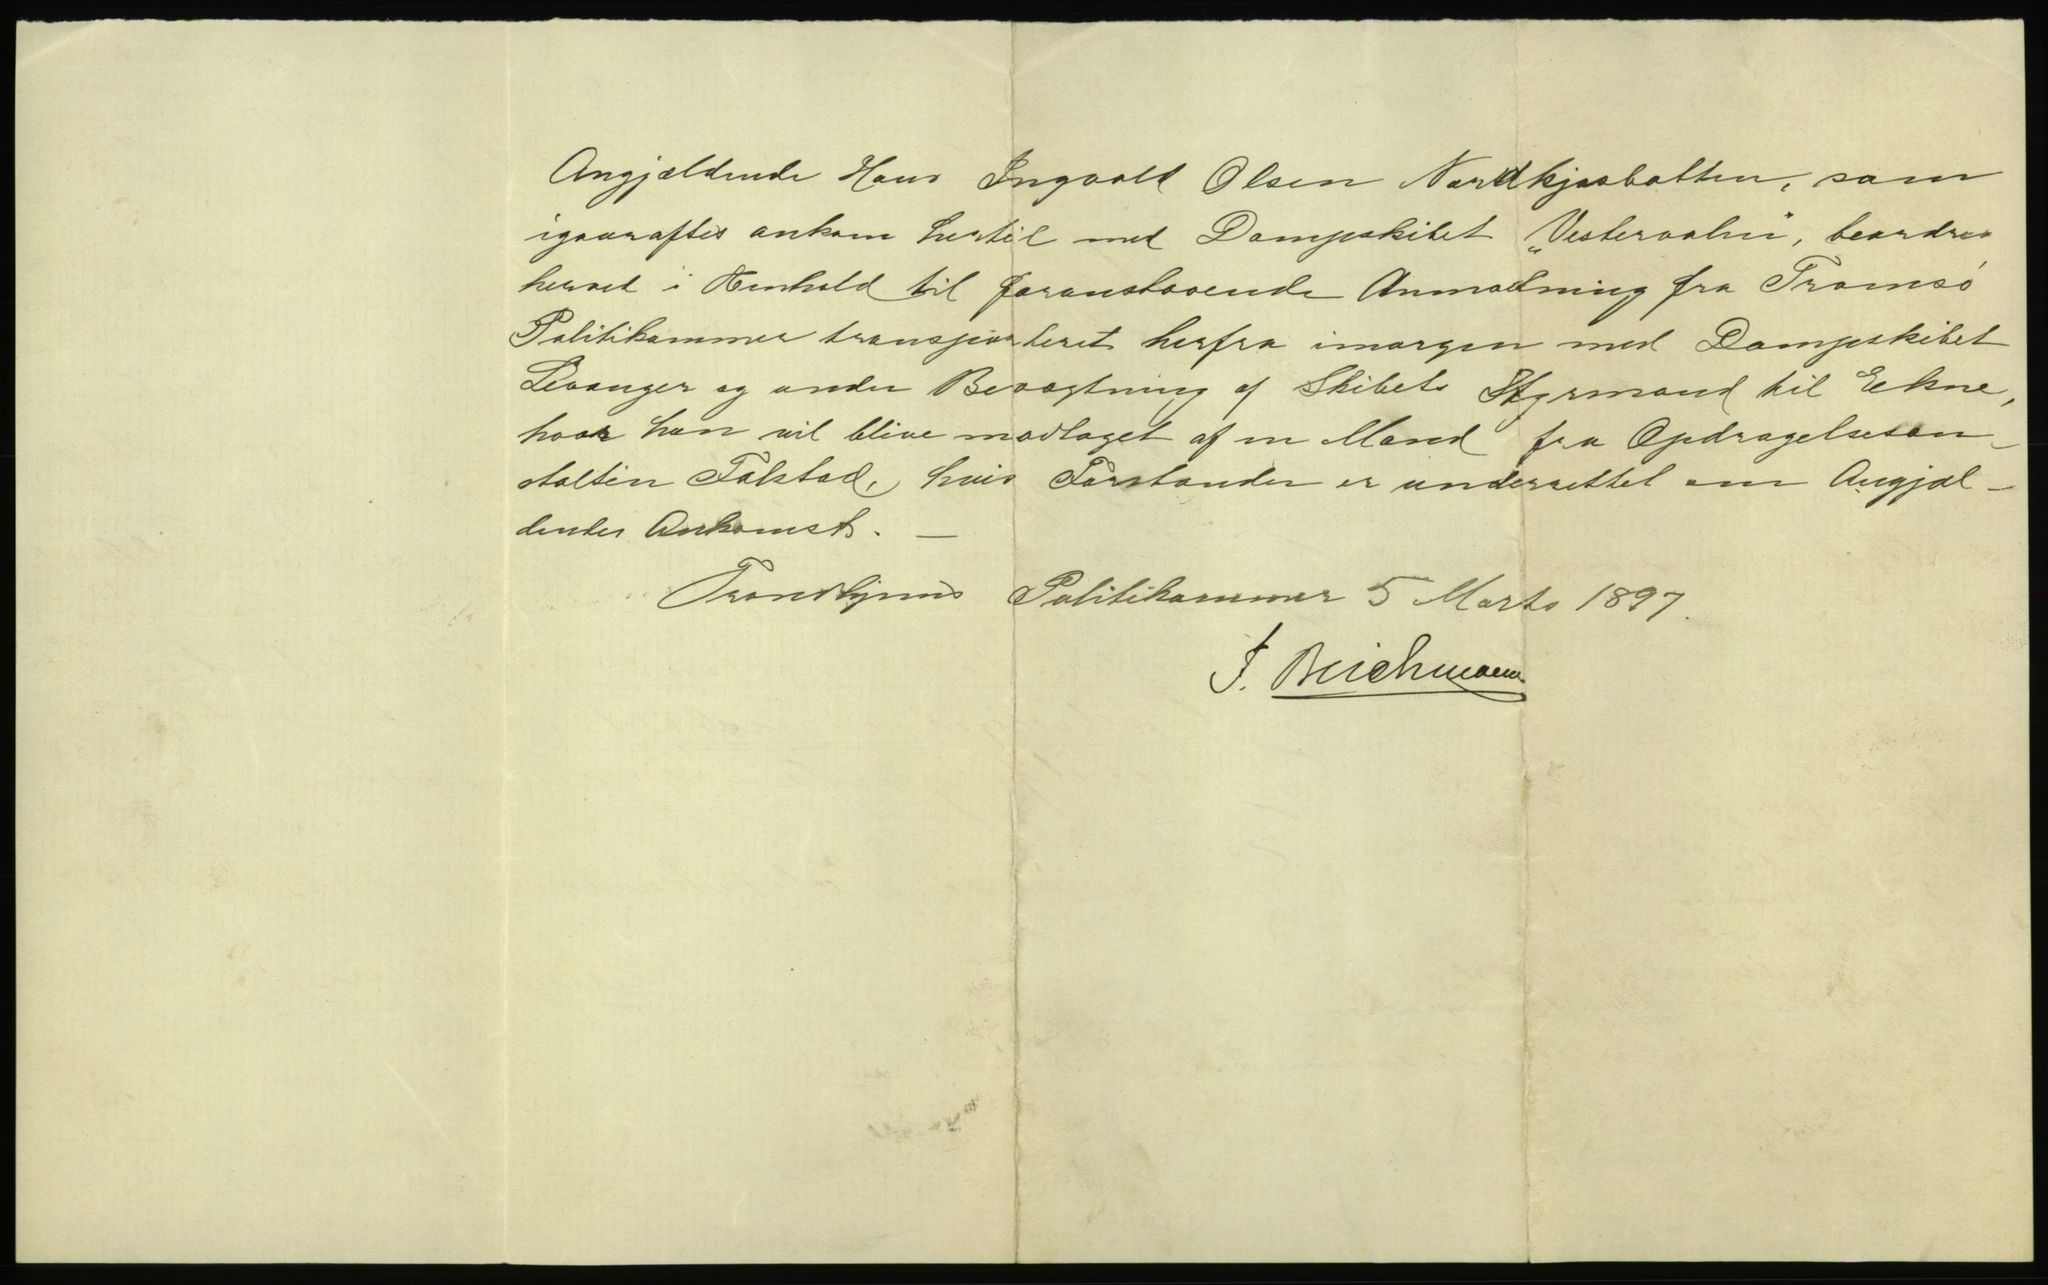 Angjældende Hans Ingvald Olsen Nordkjosbotten, som
igaaraftes ankom hertil med Dampskibet „Vesteraalen“, beordres
herved i Henhold til foranstaaende Anmodning fra Tromsö
Politikammer transporteret herfra imorgen med Dampskibet
Levanger og under Bevogtning af Skibets Styrmand til Ekne,
hvor han vil blive modtaget af en Mand fra Opdragelsesan-
stalten Falstad, hvis Forstander er underrettet om Angjæl-
dendes Ankomst. —
Trondhjems Politikammer 5 Marts 1897.
J. Beichmann